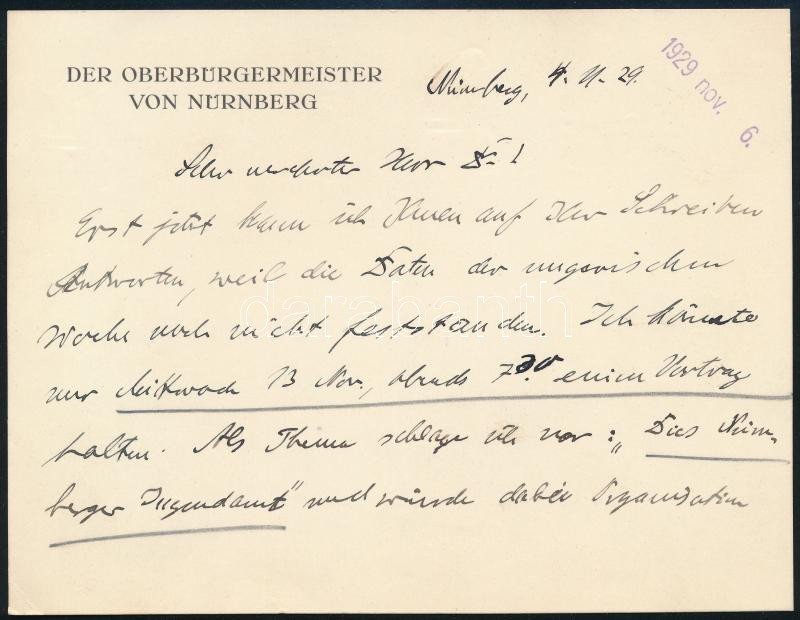 DER OBERBÜRGERMEISTER
VON NÜRNBERG
Nürnberg, 4. 11. 29.
1929 nov. 6.
Sehr verehrter Herr Dr.!
Erst jetzt kann ich Ihnen auf Ihr Schreiben
Antworten, weil die Daten der ungarischen
Woche noch nicht feststanden. Ich könnte
nur Mittwoch 13 Nov., abends 7.30 einen Vortrag
halten. Als Thema schlage ich vor: „Das Nürn-
berger Jugendamt" und würde dabei Organisation
darabanth